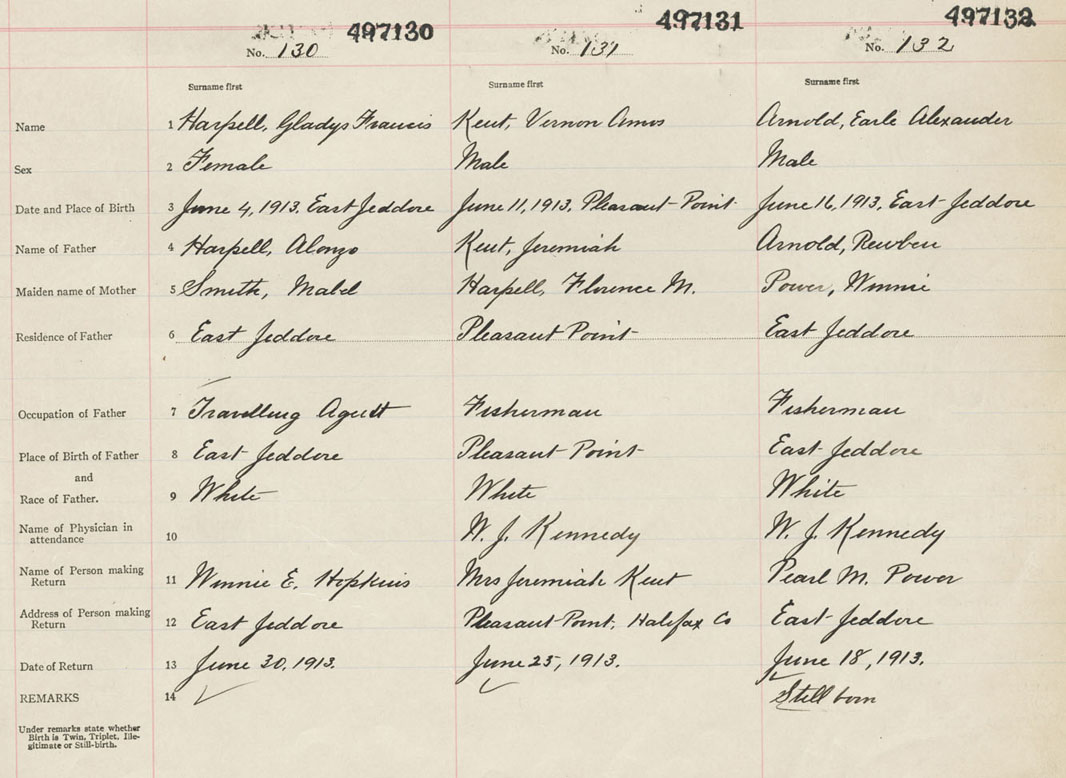 497130 497131 497132
No. 130 No. 131 No. 132
Surname first Surname first Surname first
Name 1 Harpell, Gladys Francis Kent, Vernon Amos Arnold, Earle Alexander
Sex 2 Female Male Male
Date and Place of Birth 3 June 4, 1913. East Jeddore June 11, 1913. Pleasant Point June 16, 1913. East Jeddore
Name of Father 4 Harpell, Alonzo Kent, Jeremiah Arnold, Rewben
Maiden name of Mother 5 Smith, Mabel Harpell, Florence M. Power, Winnie
Residence of Father 6 East Jeddore Pleasant Point East Jeddore
Occupation of Father 7 Travelling Agent Fisherman Fisherman
Place of Birth of Father 8 East Jeddore Pleasant Point East Jeddore
and
Race of Father. 9 White White White
Name of Physician in
attendance 10 W. J. Kennedy W. J. Kennedy
Name of Person making
Return 11 Winnie E. Hopkins Mrs Jeremiah Kent Pearl M. Power
Address of Person making
Return 12 East Jeddore Pleasant Point, Halifax Co East Jeddore
Date of Return 13 June 30, 1913. June 25, 1913. June 18, 1913.
REMARKS 14 Still born
Under remarks state whether
Birth is Twin, Triplet, Ille-
gitimate or Still-birth.